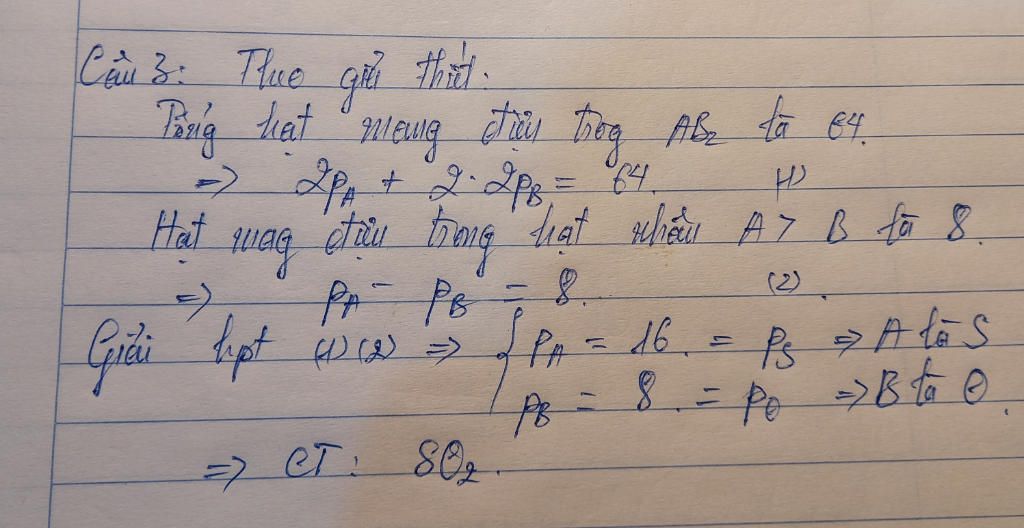 Câu 3: Theo giả thiết.
Tổng hạt mang điện trog AB₂ là 64.
=> 2pA + 2·2pB = 64. (1)
Hạt mag điện trong hạt nhân A > B là 8.
=> pA - pB = 8. (2).
Giải hpt (1) (2) => { pA = 16. = pS => A là S
pB = 8. = pO => B là O.
=> CT: SO₂.